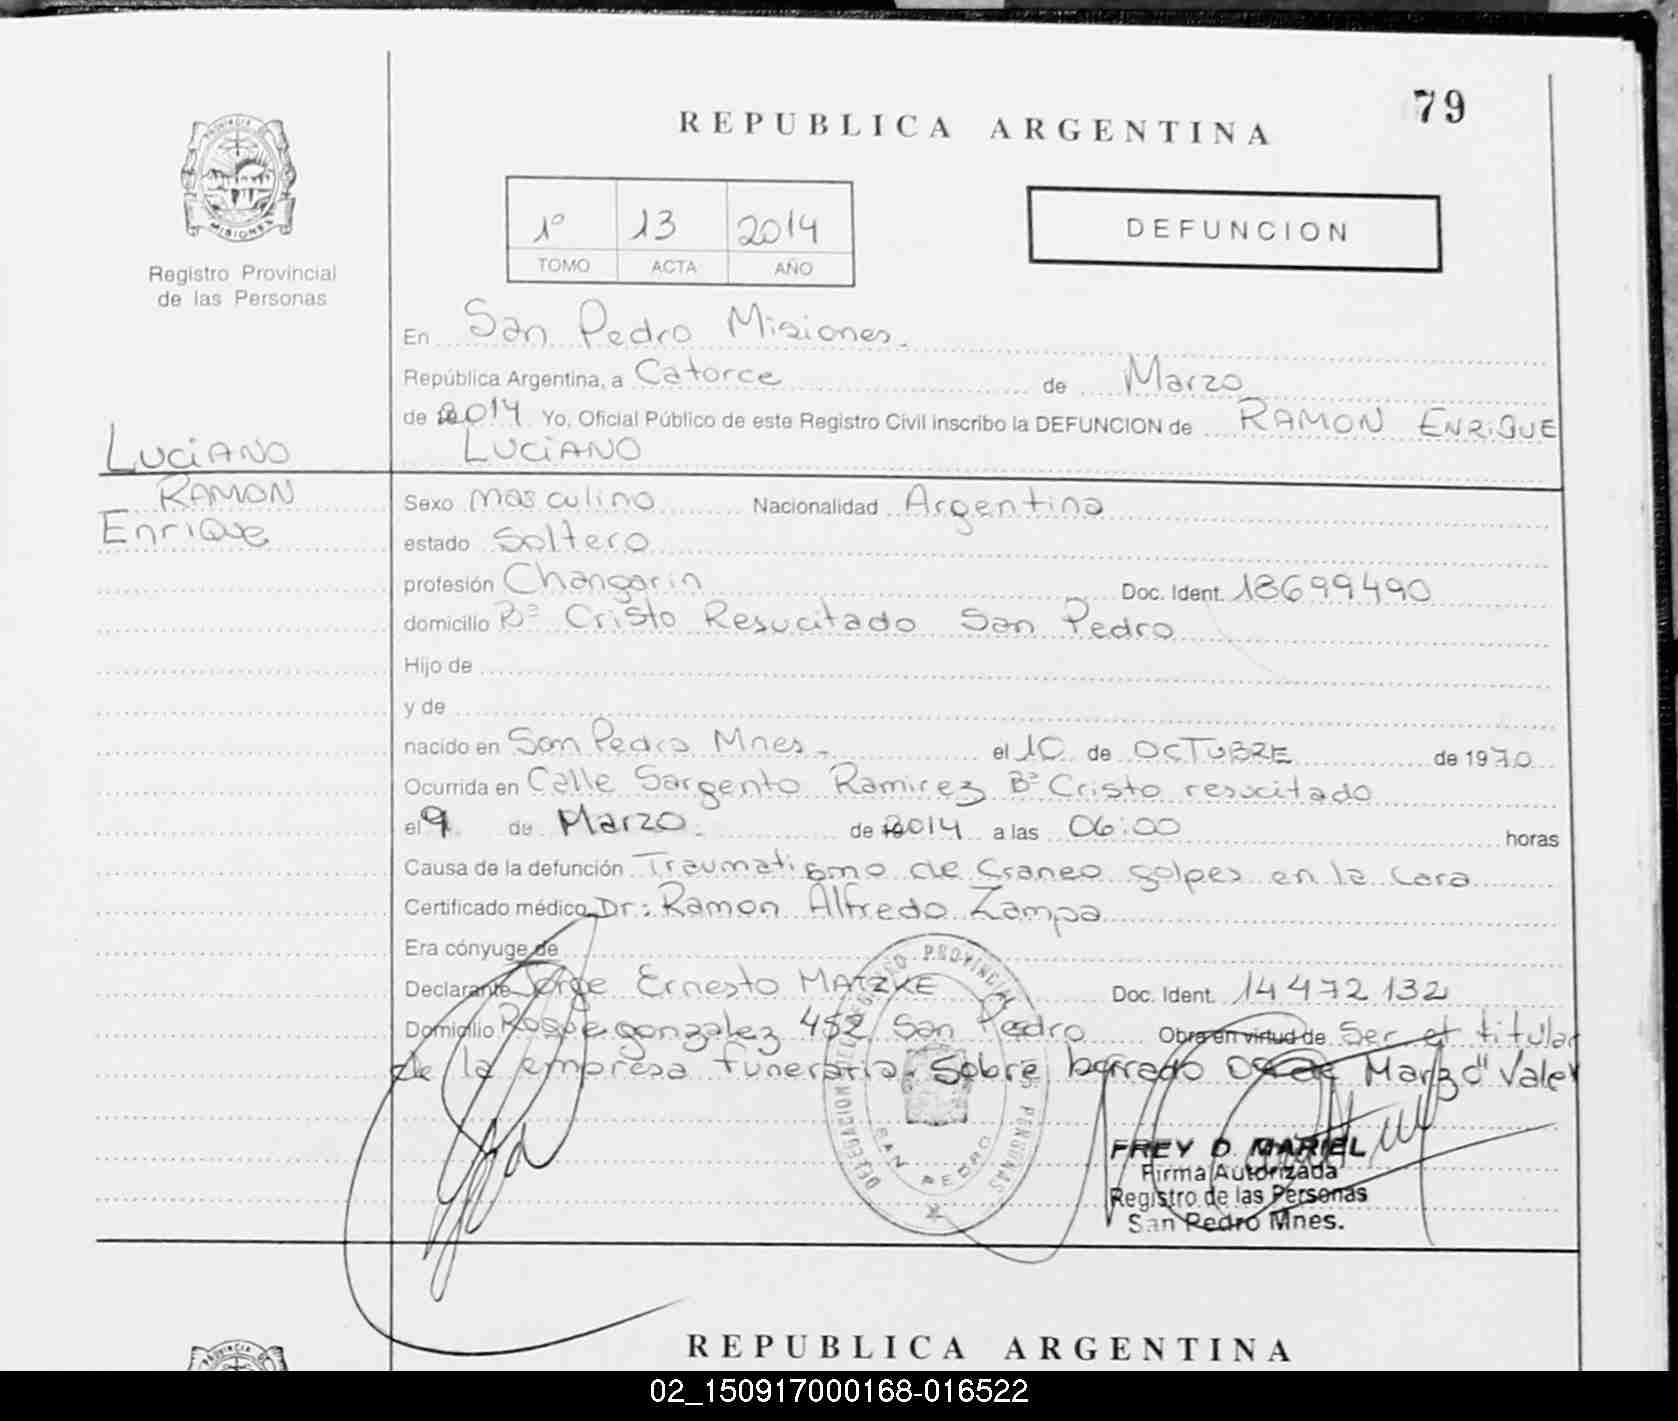 79
REPUBLICA ARGENTINA
PROVINCIA DE
MISIONES
Registro Provincial
de las Personas
1º 13 2014
TOMO ACTA AÑO
DEFUNCION
En San Pedro Misiones.
República Argentina, a Catorce de Marzo
de 2014 Yo, Oficial Público de este Registro Civil inscribo la DEFUNCION de RAMON ENRIQUE
LUCIANO
LUCIANO
RAMON
Enrique
Sexo masculino Nacionalidad Argentina
estado Soltero
profesión Changarin Doc. Ident. 18699490
domicilio Bº Cristo Resucitado San Pedro
Hijo de
y de
nacido en San Pedro Mnes. el 10 de OCTUBRE de 1970
Ocurrida en Calle Sargento Ramirez Bº Cristo resucitado
el 9 de Marzo. de 2014 a las 06:00 horas
Causa de la defunción Traumatismo de Craneo golpes en la cara
Certificado médico Dr: Ramon Alfredo Zampa
Era cónyuge de
Declarante Jorge Ernesto MATZKE Doc. Ident. 14 472 132
Domicilio Roque gonzalez 452 San Pedro Obra en virtud de Ser el titular
de la empresa funeraria. Sobre borrado Marzo" Vale
DELEGACION DEL REGISTRO PROVINCIAL DE LAS PERSONAS
SAN PEDRO
FREY D. MARIEL
Firma Autorizada
Registro de las Personas
San Pedro Mnes.
REPUBLICA ARGENTINA
PROVINCIA DE
02_150917000168-016522